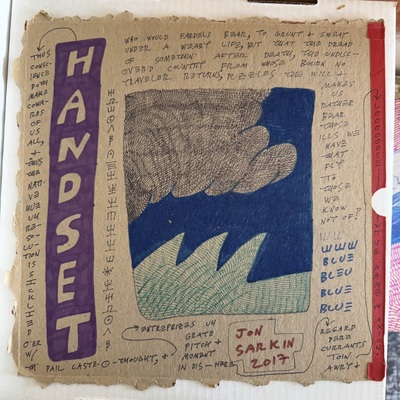 WHO WOULD FARDELS BEAR, TO GRUNT & SWEAT
UNDER A WEARY LIFE, BUT THAT THE DREAD
OF SOMETHIN' AFTER DEATH, THE UNDIS-
OVER'D COUNTRY FROM WHOSE BOURN NO
TRAVELER RETURNS, PUZZLES THE WILL &
MAKES
US
RATHER
BEAR
THOSE
ILLS WE
HAVE
THAT
FLY
TO
THOSE
WE
KNOW
NOT OF?
THUS
CONS-
IENCE
DOTH
MAKE
COWA-
RDS
OF
US
ALL, &
THUS
THE
NATI-
VE
HUE
UH
RE-
SO-
LUT-
ION IS
SICK
LIED
O'ER
W/
TH' PAIL CASTE O THOUGHT, &
HANDSET
WWW
BLUE
BLEU
BLUE
BLUE
ENTERPRIZES UH
GRATE
PITCH &
MOMENT
IN DIS-HERE
REGARD
PERR
CURRANTS
TOIN
AWRY &
JON
SARKIN
2017